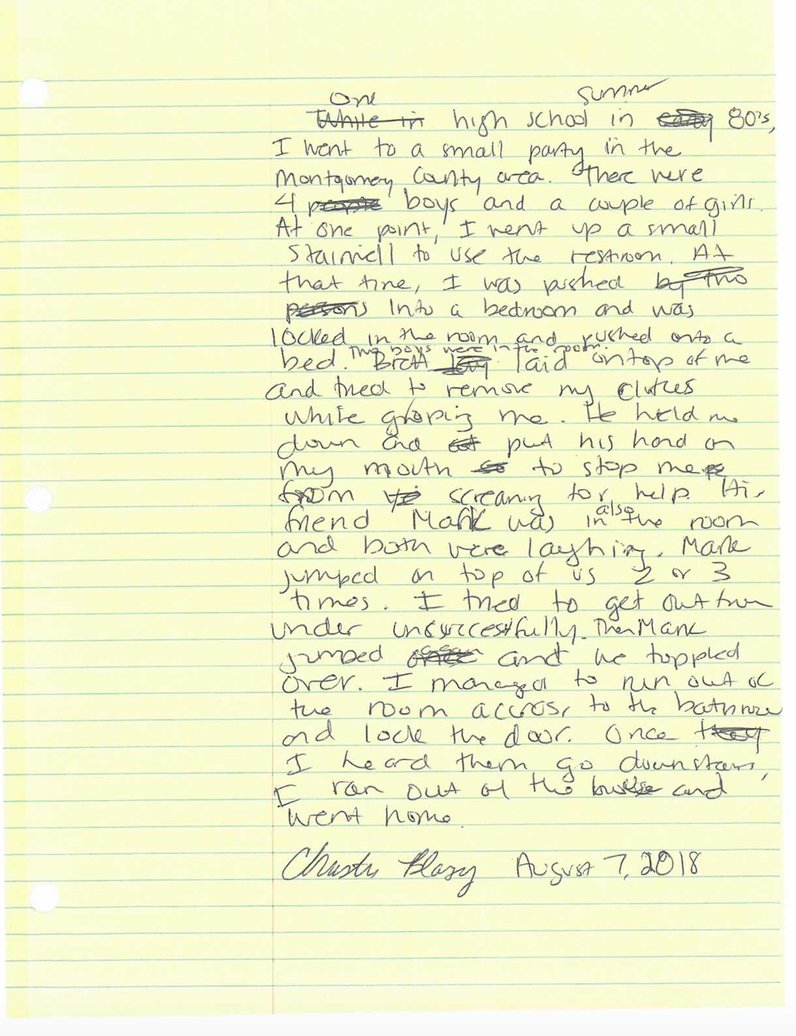 One summer
While in high school in early 80's,
I went to a small party in the
Montgomery County area. There were
4 people boys and a couple of girls.
At one point, I went up a small
stairwell to use the restroom. At
that time, I was pushed by two
persons into a bedroom and was
locked in the room and pushed onto a
Two boys were in the room.
bed. Brett laid on top of me
and tried to remove my clothes
while groping me. He held me
down and put his hand on
my mouth to stop me
from screaming for help. His
also
friend Mark was in the room
and both were laughing. Mark
jumped on top of us 2 or 3
times. I tried to get out from
under unsuccessfully. Then Mark
jumped once and we toppled
over. I managed to run out of
the room across to the bathroom
and lock the door. Once they
I heard them go downstairs,
I ran out of the house and
went home.
August 7, 2018